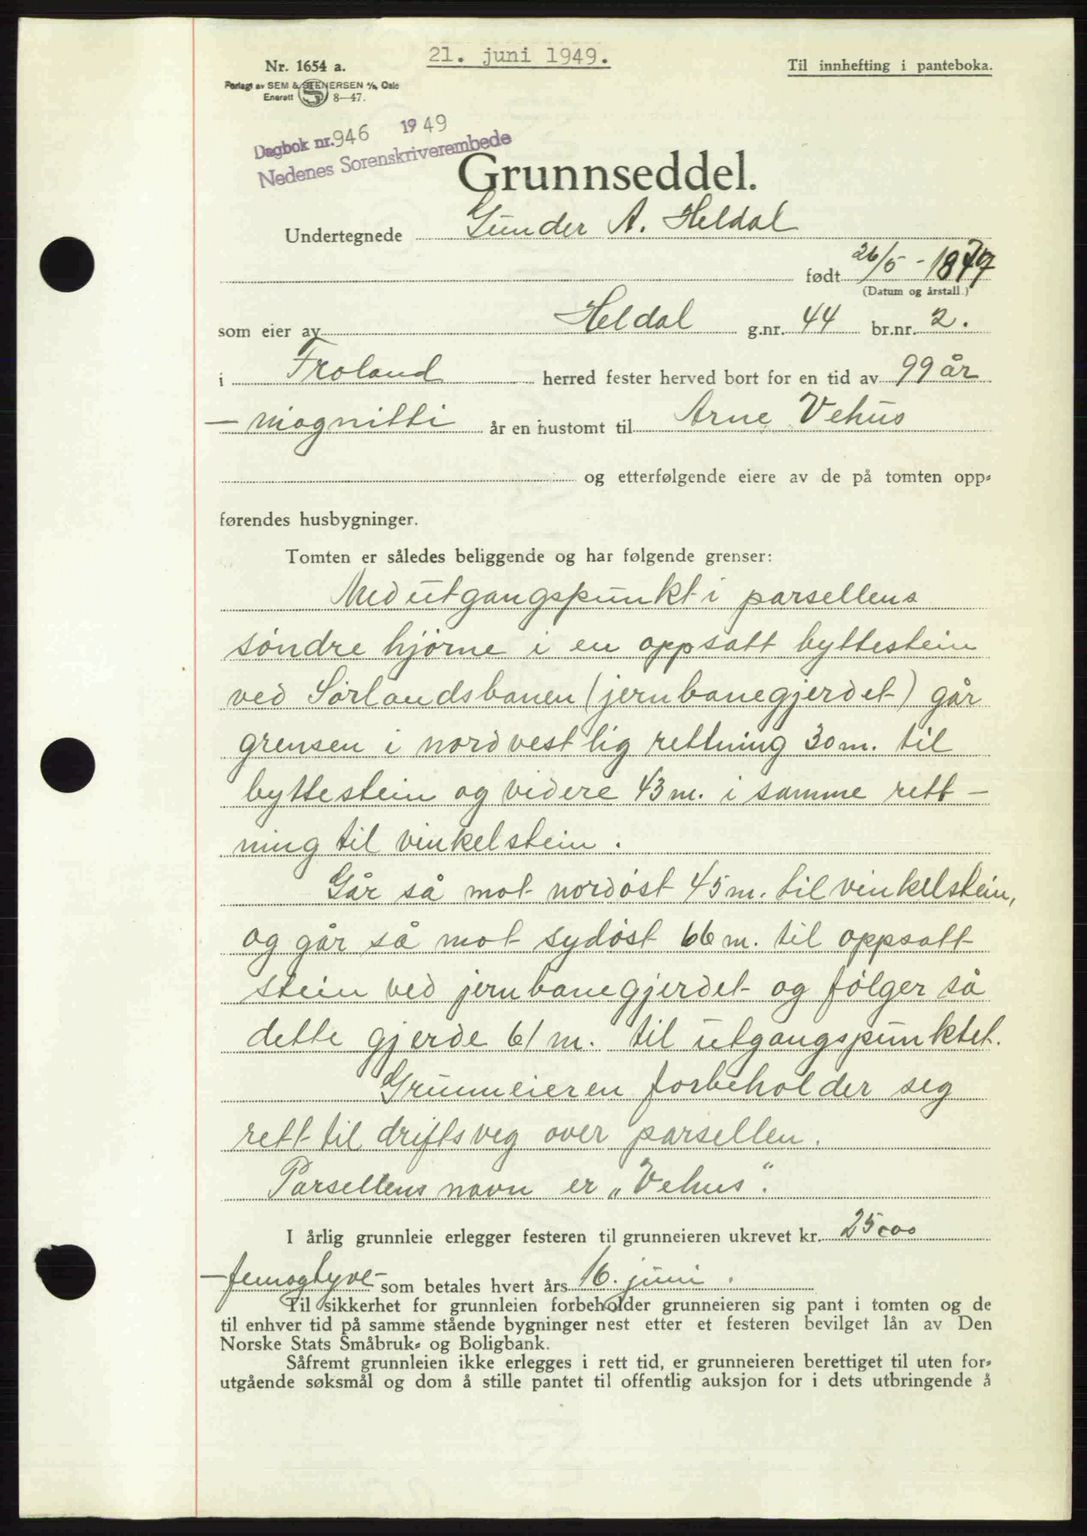 21. juni 1949.
Nr. 1654 a.
Til innhefting i panteboka.
Forlagt av SEM & STENERSEN A/S, Oslo
Enerett 8—47.
Dagbok nr. 946 1949
Nedenes Sorenskriverembede
Grunnseddel.
Undertegnede Gunder A. Heldal
født 26/5 - 1877
(Datum og årstall.)
som eier av Heldal g.nr. 44 br.nr. 2.
i Froland herred fester herved bort for en tid av 99 år
— niognitti år en hustomt til Arne Vehus
og etterfølgende eiere av de på tomten opp-
førendes husbygninger.
Tomten er således beliggende og har følgende grenser:
Med utgangspunkt i parsellens
søndre hjørne i en oppsatt byttestein
ved Sørlandsbanen (jernbanegjerdet) går
grensen i nordvestlig rettning 30 m. til
byttestein og videre 43 m. i samme rett-
ning til vinkelstein.
Går så mot nordøst 45 m. til vinkelstein,
og går så mot sydøst 66 m. til oppsatt
stein ved jernbanegjerdet og følger så
dette gjerde 61 m. til utgangspunktet.
Grunneieren forbeholder seg
rett til driftsveg over parsellen.
Parsellens navn er „Vehus".
I årlig grunnleie erlegger festeren til grunneieren ukrevet kr. 25 000
— femogtyve — som betales hvert års 16. juni.
Til sikkerhet for grunnleien forbeholder grunneieren sig pant i tomten og de
til enhver tid på samme stående bygninger nest etter et festeren bevilget lån av Den
Norske Stats Småbruk- og Boligbank.
Såfremt grunnleien ikke erlegges i rett tid, er grunneieren berettiget til uten for-
utgående søksmål og dom å stille pantet til offentlig auksjon for i dets utbringende å